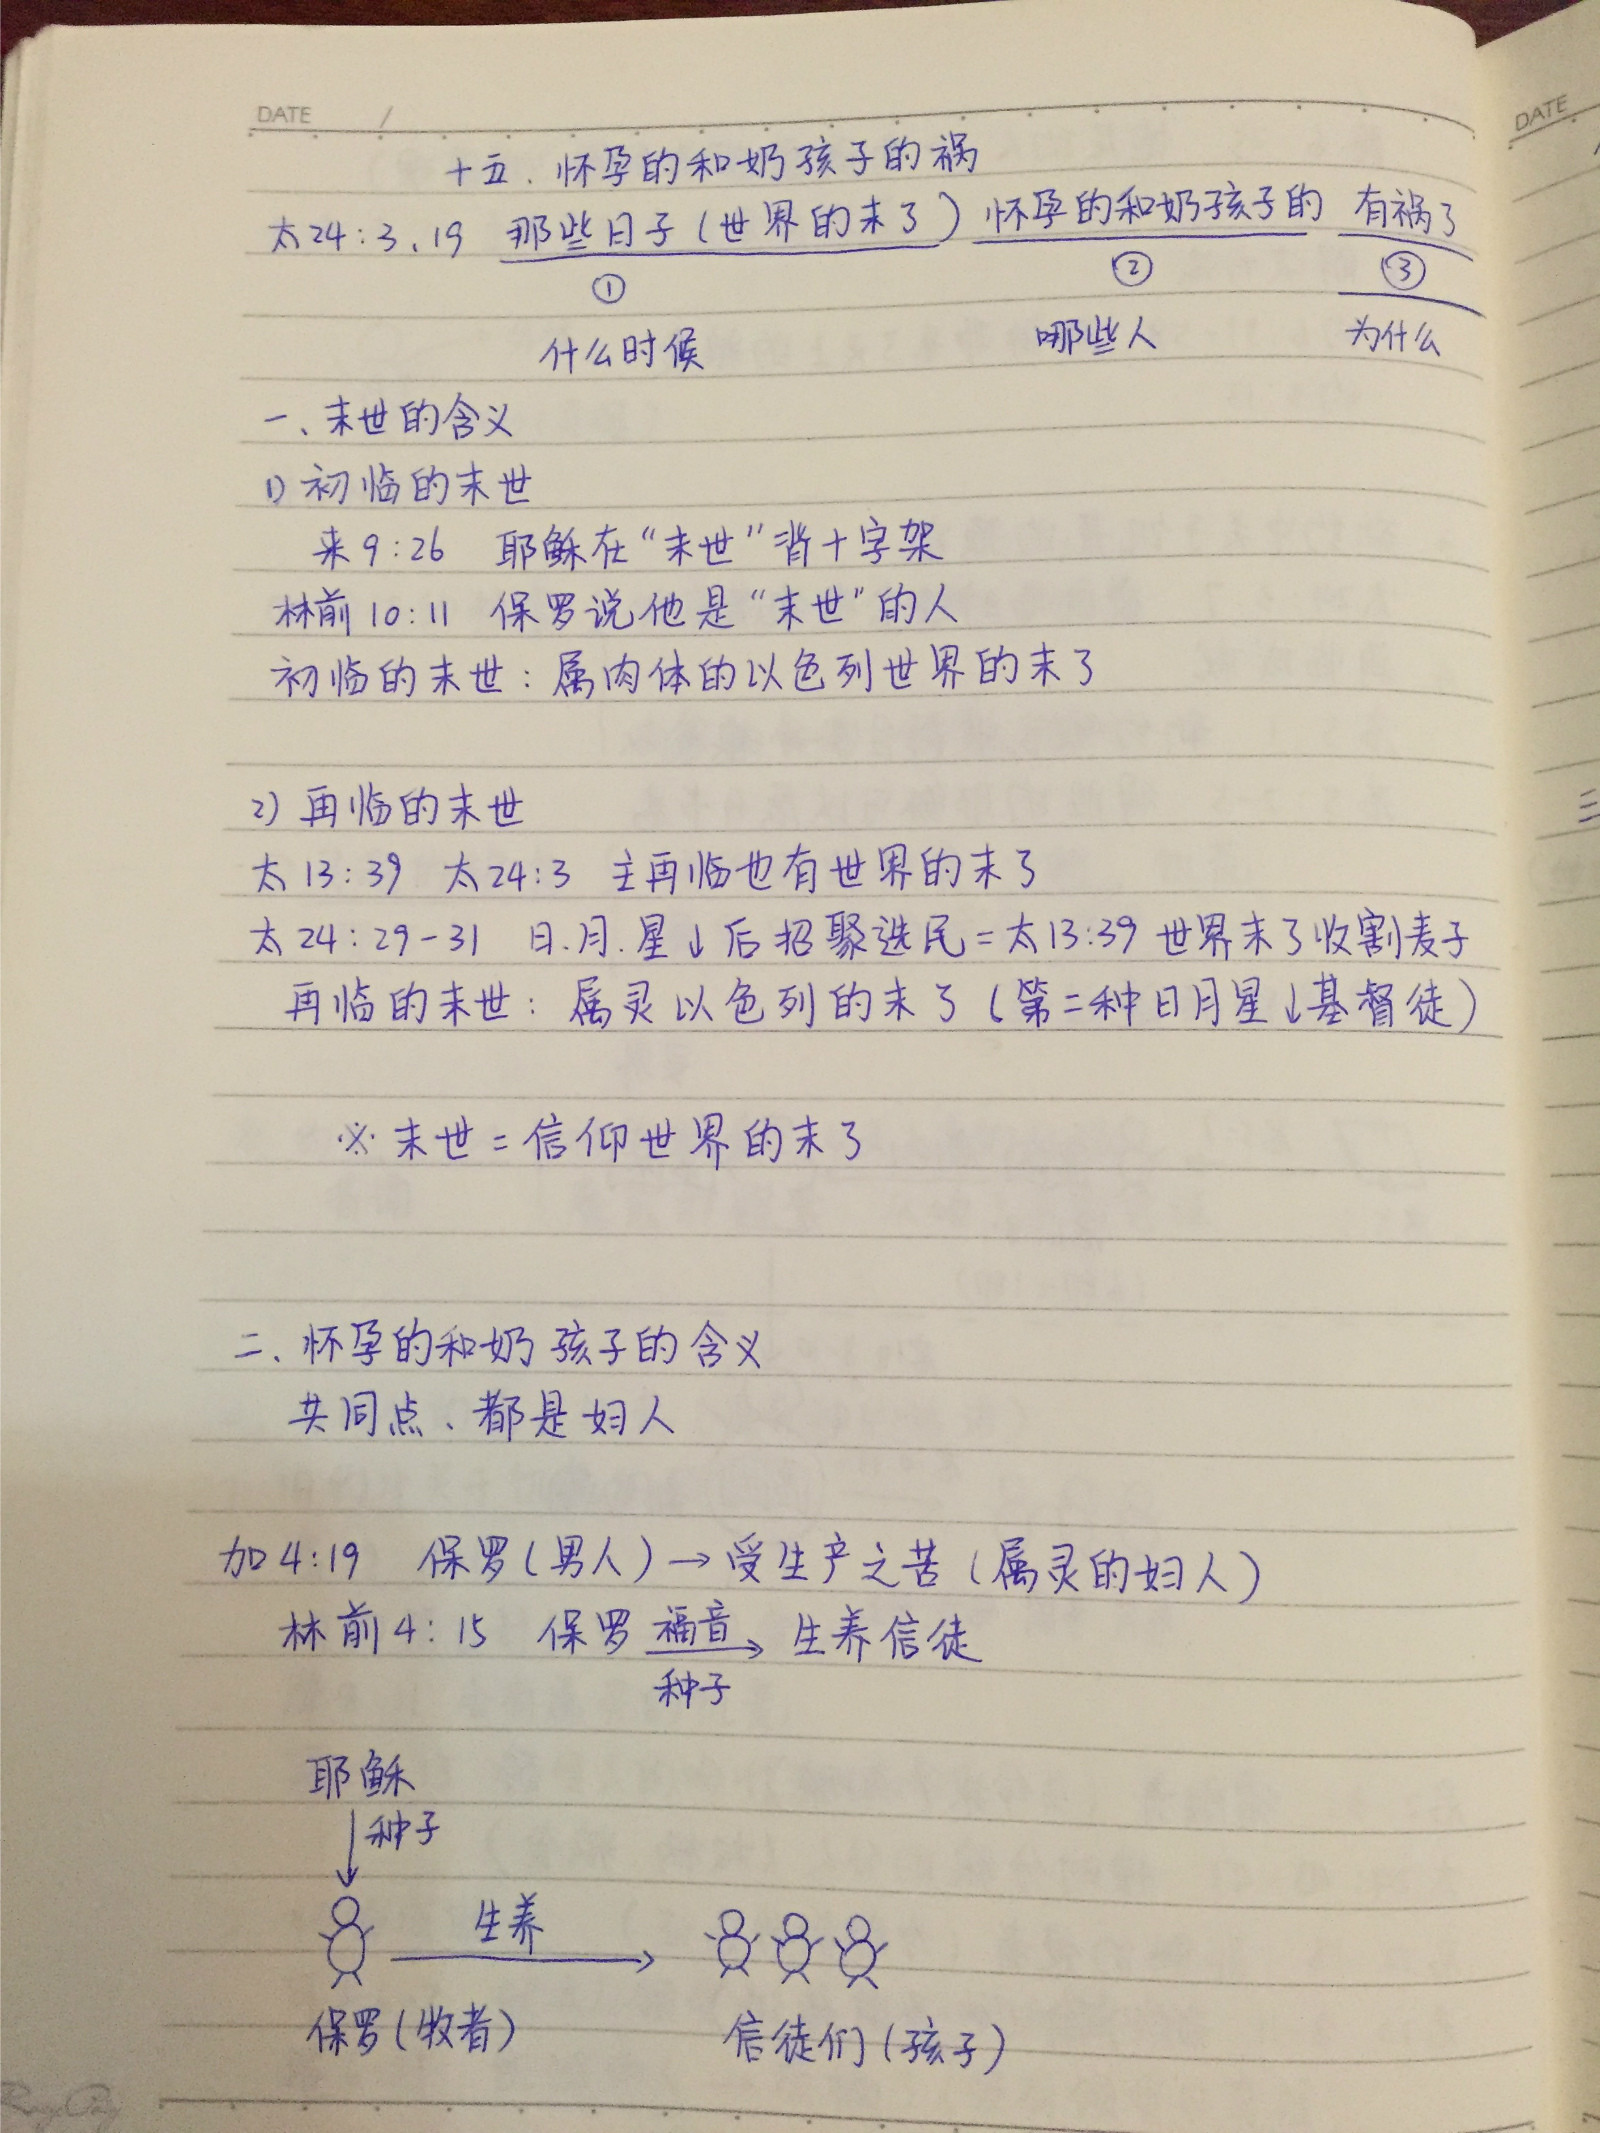 DATE /
DATE
十五、怀孕的和奶孩子的祸
太24:3、19 那些日子(世界的末了) 怀孕的和奶孩子的 有祸了
① ② ③
什么时候 哪些人 为什么
一、末世的含义
1) 初临的末世
来9:26 耶稣在“末世”背十字架
林前10:11 保罗说他是“末世”的人
初临的末世:属肉体的以色列世界的末了
2) 再临的末世
三
太13:39 太24:3 主再临也有世界的末了
太24:29-31 日.月.星↓后招聚选民=太13:39 世界末了收割麦子
再临的末世:属灵以色列的末了(第二种日月星↓基督徒)
※末世=信仰世界的末了
二、怀孕的和奶孩子的含义
共同点、都是妇人
加4:19 保罗(男人)→受生产之苦(属灵的妇人)
林前4:15 保罗 福音→ 生养信徒
种子
耶稣
↓种子
生养
→
保罗(牧者) 信徒们(孩子)